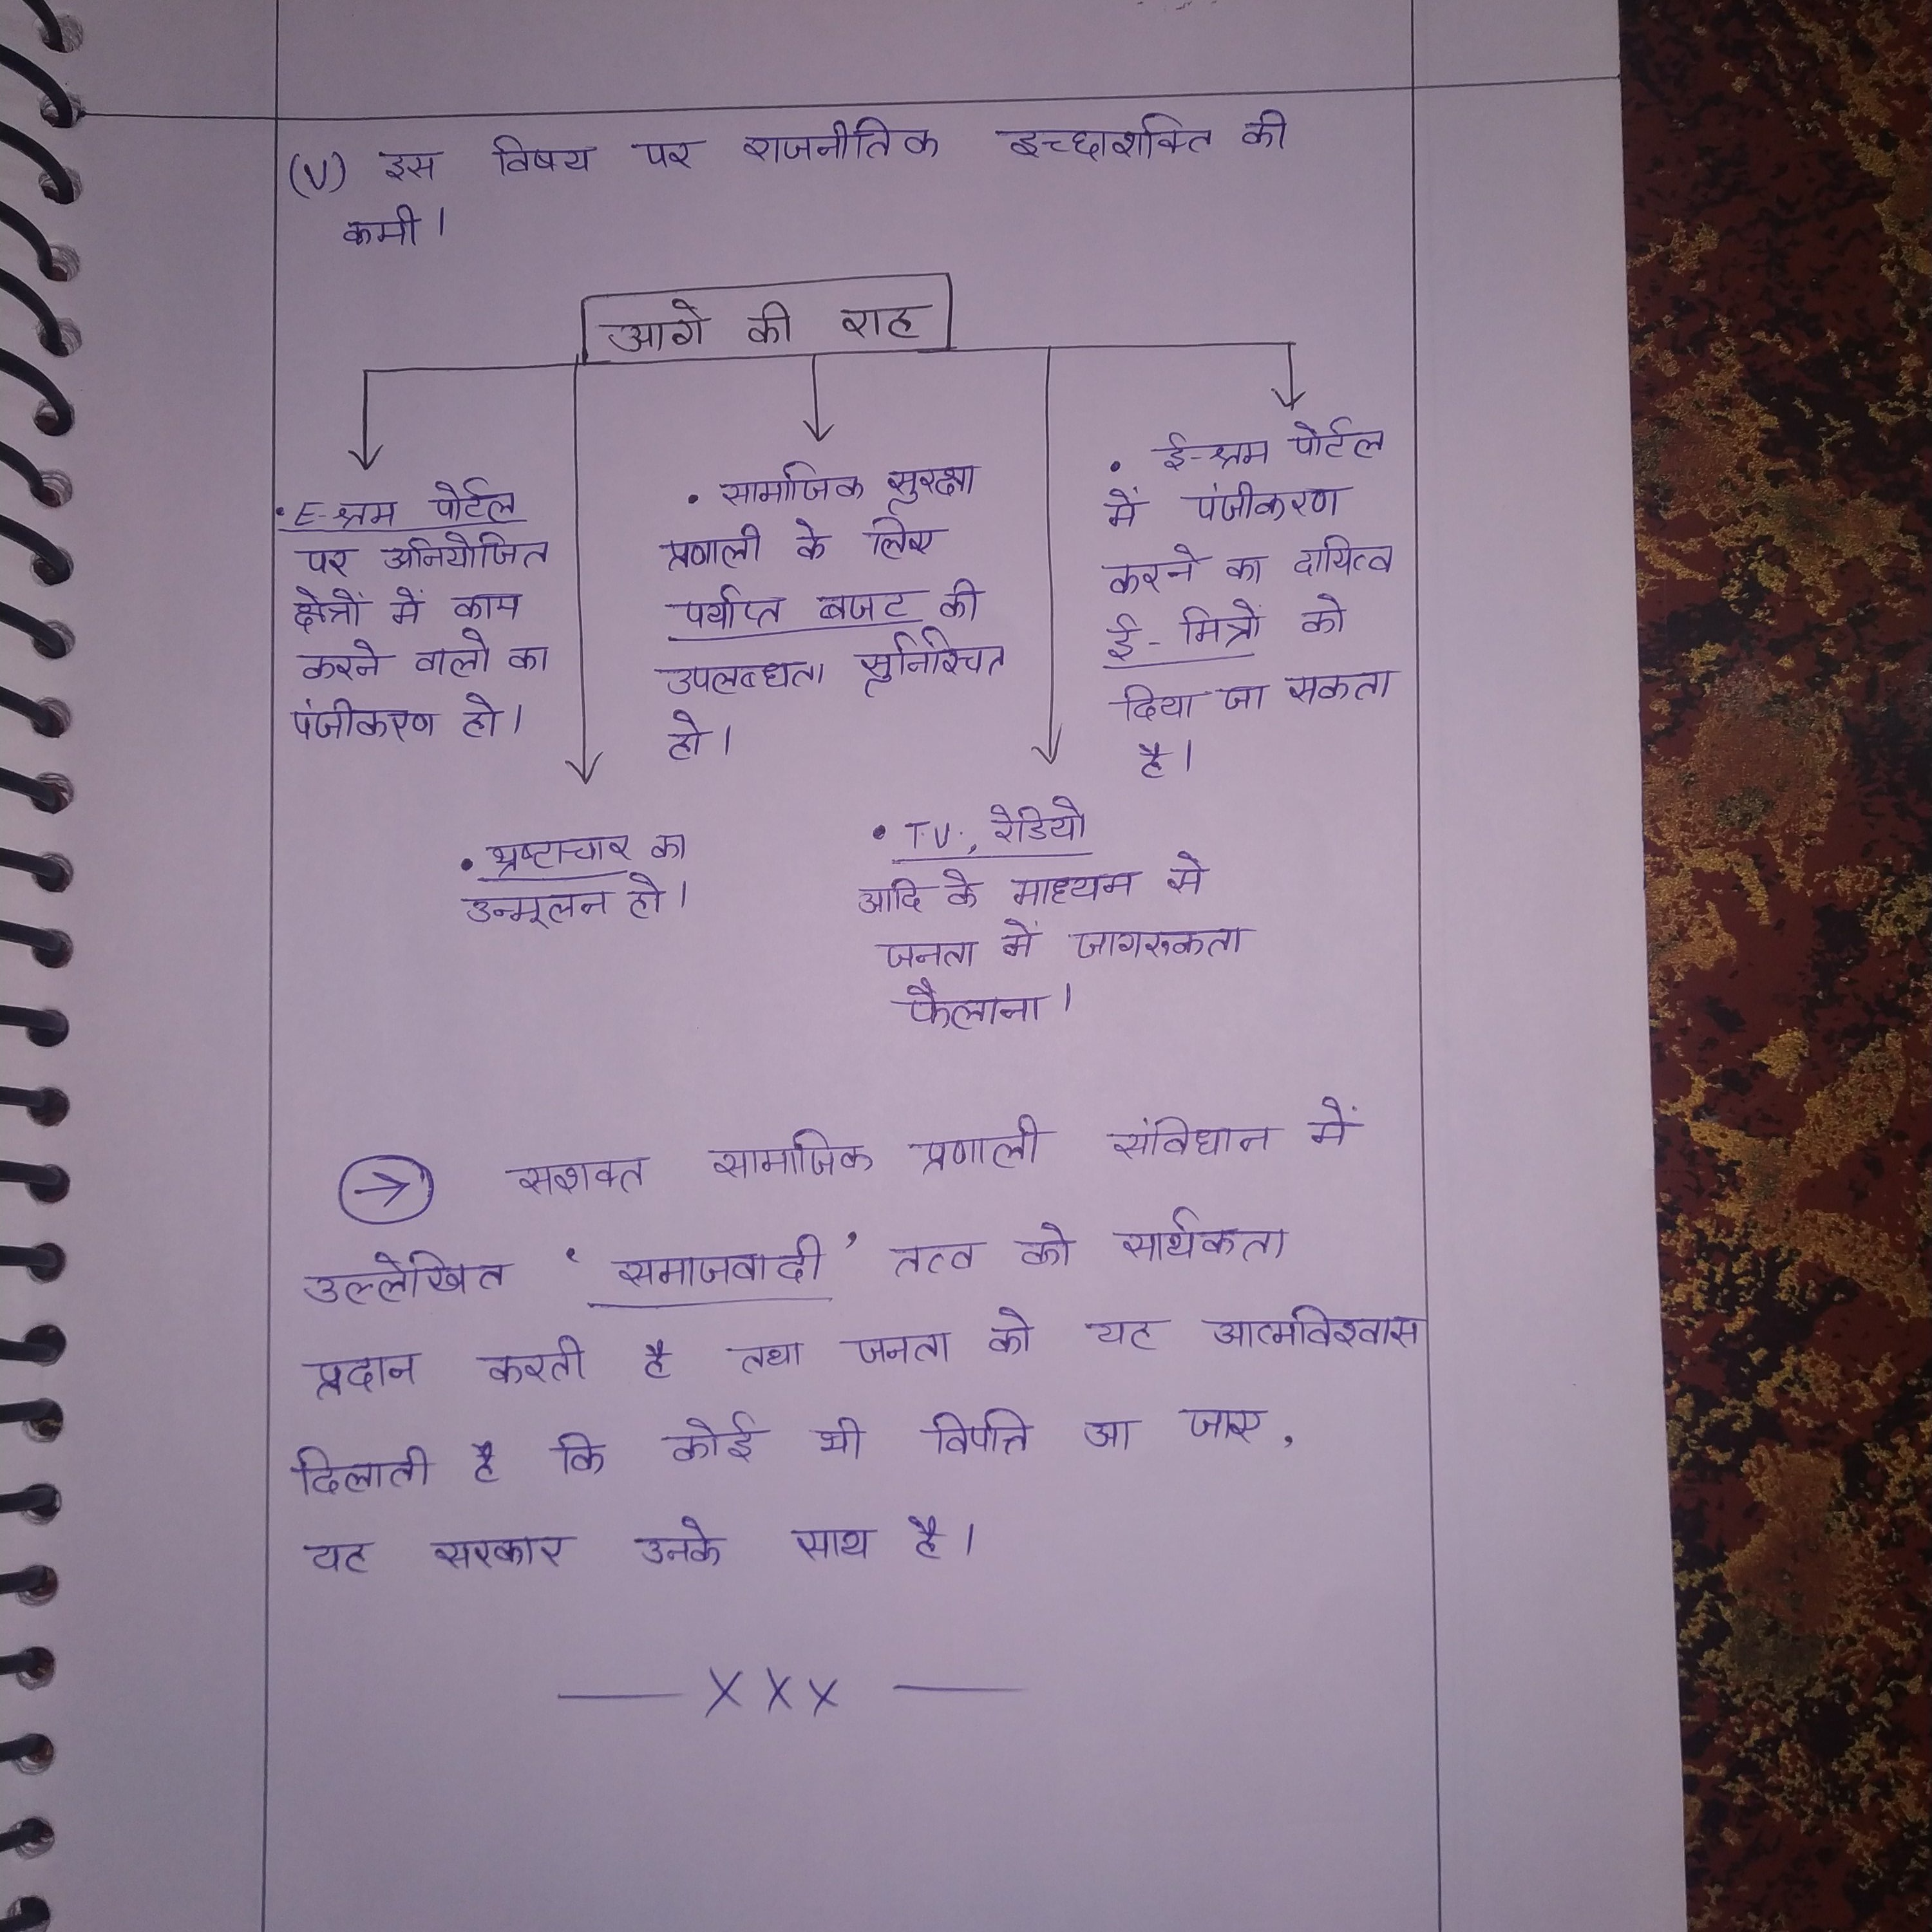 (V) इस विषय पर राजनीतिक इच्छाशक्ति की
कमी।
आगे की राह
• E-श्रम पोर्टल
पर अनियोजित
क्षेत्रों में काम
करने वालो का
पंजीकरण हो।
• भ्रष्टाचार का
उन्मूलन हो।
• सामाजिक सुरक्षा
प्रणाली के लिए
पर्याप्त बजट की
उपलब्धता सुनिश्चित
हो।
• T.V., रेडियो
आदि के माध्यम से
जनता में जागरुकता
फैलाना।
• ई-श्रम पोर्टल
में पंजीकरण
करने का दायित्व
ई-मित्रों को
दिया जा सकता
है।
→ सशक्त सामाजिक प्रणाली संविधान में
उल्लेखित 'समाजवादी' तत्व को सार्थकता
प्रदान करती है तथा जनता को यह आत्मविश्वास
दिलाती है कि कोई भी विपत्ति आ जाए,
यह सरकार उनके साथ है।
— X X X —